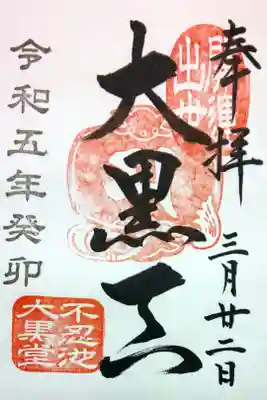 奉拝
三月廿二日
開運
出世
大黒天
令和五年癸卯
不忍池
大黒堂